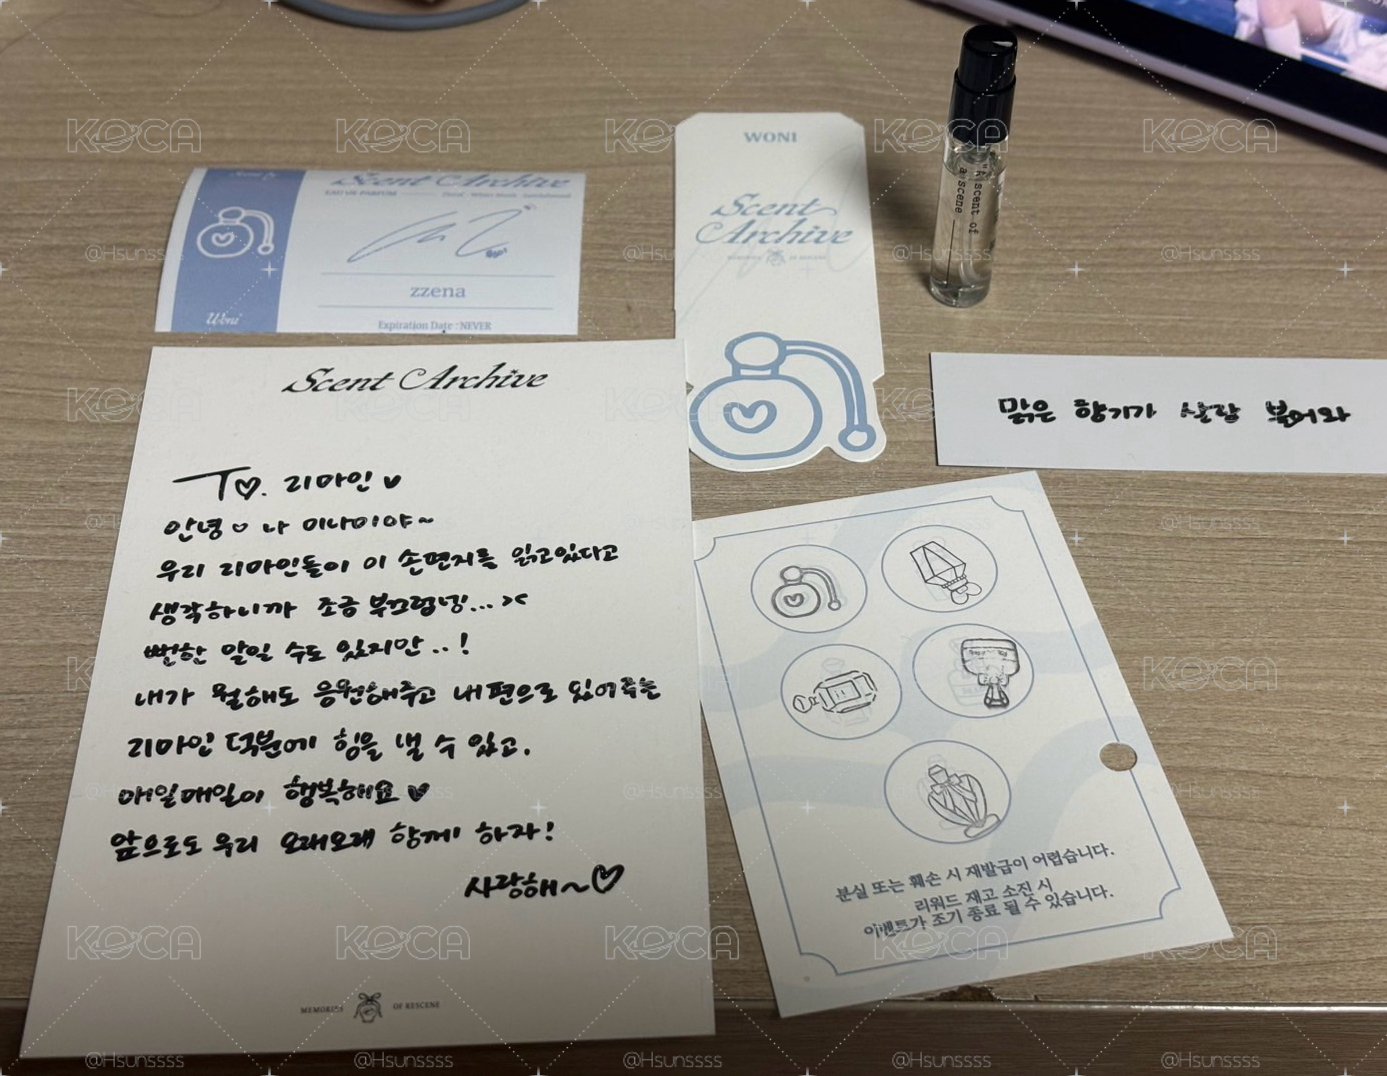 Scent Archive
EAU DE PARFUM
Woni
zzena
Expiration Date : NEVER
WONI
Scent
Archive
MEMORIES OF RESCENE
scent of
a scene
맑은 향기가 살랑 불어와
Scent Archive
To. 리마인
안녕 나 미나미야~
우리 리마인들이 이 손편지를 읽고있다고
생각하니까 조금 부끄럽넹...><
뻔한 말일 수도 있지만..!
내가 뭘해도 응원해주고 내편으로 있어주는
리마인 덕분에 힘을 낼 수 있고.
매일매일이 행복해요
앞으로도 우리 오래오래 함께 하자!
사랑해~
MEMORIES OF RESCENE
분실 또는 훼손 시 재발급이 어렵습니다.
리워드 재고 소진 시
이벤트가 조기 종료 될 수 있습니다.
KOCA
@Hsunssss